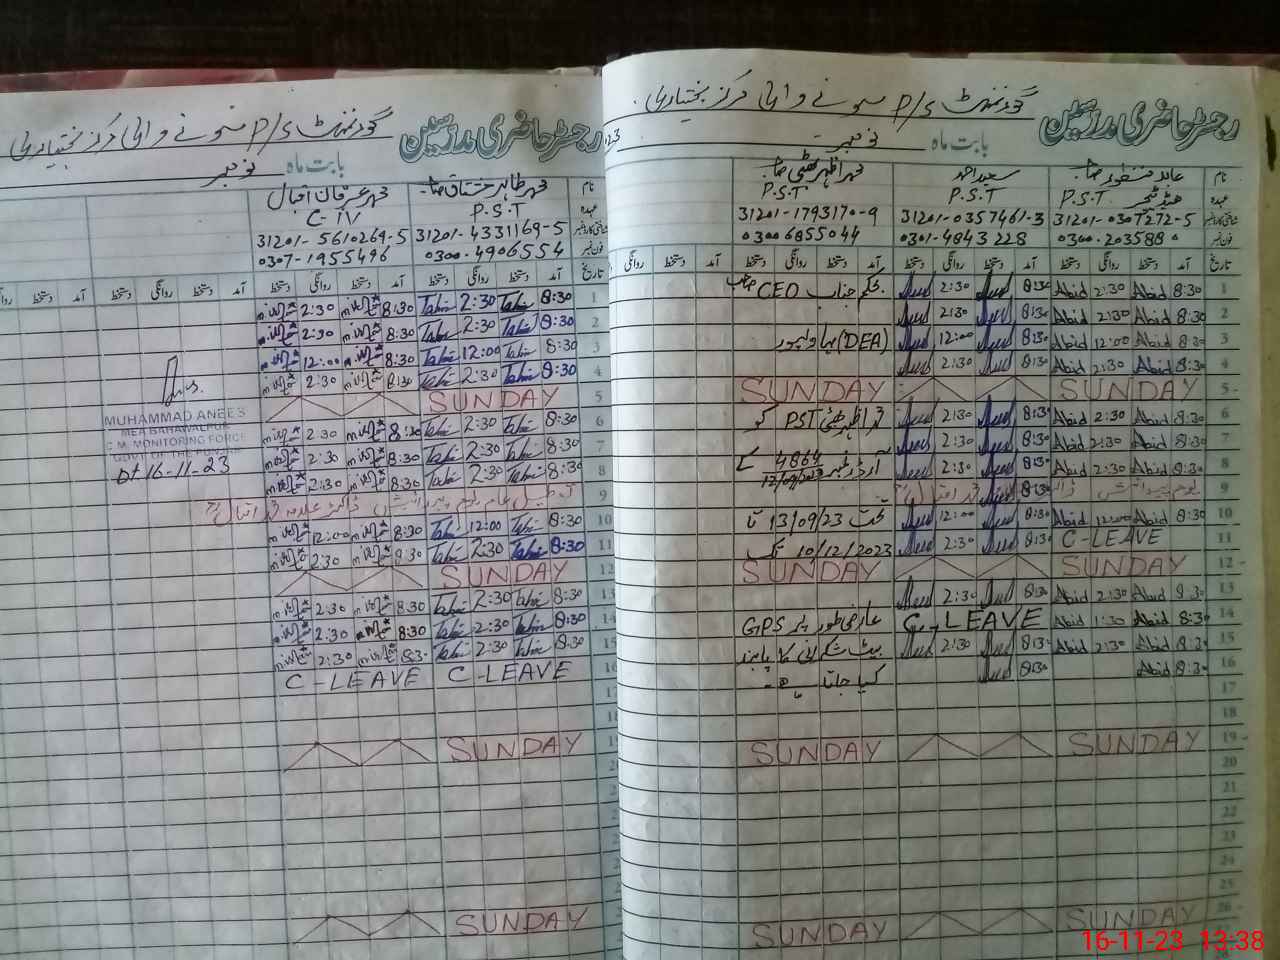 رجسٹر حاضری مدرسین
گورنمنٹ P/S
بابت ماہ نومبر
نام
عہدہ
شناختی کارڈ نمبر
فون نمبر
تاریخ آمد دستخط روانگی دستخط
عابد منظور صاحب
ہیڈ ٹیچر P.S.T
31201-0307272-5
0300-2035880
سعید احمد
P.S.T
31201-0357461-3
0301-4843228
محمد اظہر بھٹی صاحب
P.S.T.
31201-1793170-9
03006855044
1 8:30 Abid 2:30 Abid 8:30 2:30
2 8:30 Abid 2:30 Abid 8:30 2:30
3 8:30 Abid 12:00 Abid 8:30 12:00
4 8:30 Abid 2:30 Abid 8:30 2:30
5 SUNDAY SUNDAY
6 8:30 Abid 2:30 Abid 8:30 2:30
7 8:30 Abid 2:30 Abid 8:30 2:30
8 8:30 Abid 2:30 Abid 8:30 2:30
9 8:30
10 8:30 Abid 12:00 Abid 8:30 12:00
11 C-LEAVE 8:30 2:30
12 SUNDAY SUNDAY
13 8:30 Abid 2:30 Abid 8:30 2:30
14 8:30 Abid 1:30 Abid C-LEAVE
15 8:30 Abid 2:30 Abid 8:30 2:30
16 8:30 Abid 8:30
17
18
19 SUNDAY SUNDAY
20
21
22
23
24
25
26 SUNDAY SUNDAY
بحکم جناب CEO صاحب
(DEA) بہاولپور
محمد اظہر بھٹی PST کو
آرڈر نمبر 4864 کے
12/09/2023
تحت 13/09/23 تا
10/12/2023 تک
عارضی طور پر GPS
کا پابند
کیا جاتا ہے۔
رجسٹر حاضری مدرسین
گورنمنٹ P/S
بابت ماہ نومبر
نام
تاریخ آمد دستخط روانگی دستخط
محمد طاہر مشتاق صاحب
P.S.T
31201-4331169-5
0300-4906554
محمد عرفان اقبال
C-IV
31201-5610269-5
0307-1955496
1 8:30 Tahir 2:30 Tahir 8:30 2:30
2 8:30 Tahir 2:30 Tahir 8:30 2:30
3 8:30 Tahir 12:00 Tahir 8:30 12:00
4 8:30 Tahir 2:30 Tahir 8:30 2:30
5 SUNDAY
6 8:30 Tahir 2:30 Tahir 8:30 2:30
7 8:30 Tahir 2:30 Tahir 8:30 2:30
8 8:30 Tahir 2:30 Tahir 8:30 2:30
9 تعطیل عام یوم پیدائش ڈاکٹر علامہ محمد اقبال
10 8:30 Tahir 12:00 Tahir 8:30 12:00
11 8:30 Tahir 2:30 Tahir 8:30 2:30
12 SUNDAY
13 8:30 Tahir 2:30 Tahir 8:30 2:30
14 8:30 Tahir 2:30 Tahir 8:30 2:30
15 8:30 Tahir 2:30 Tahir 8:30 2:30
16 C-LEAVE C-LEAVE
17
18
SUNDAY
20
21
22
23
24
25
SUNDAY
MUHAMMAD ANEES
MEA BAHAWALPUR
C.M. MONITORING FORCE
GOVT OF THE PUNJAB
Dt 16-11-23
16-11-23 13:38